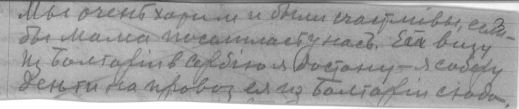 Мы очень хорим и были счастливы, если-
бы мама посоиласту насъ. Ея визу
из Болгарiи в Сербiю я достану – я соберу
деньги на провозъ ея из Болгарiи сюда.